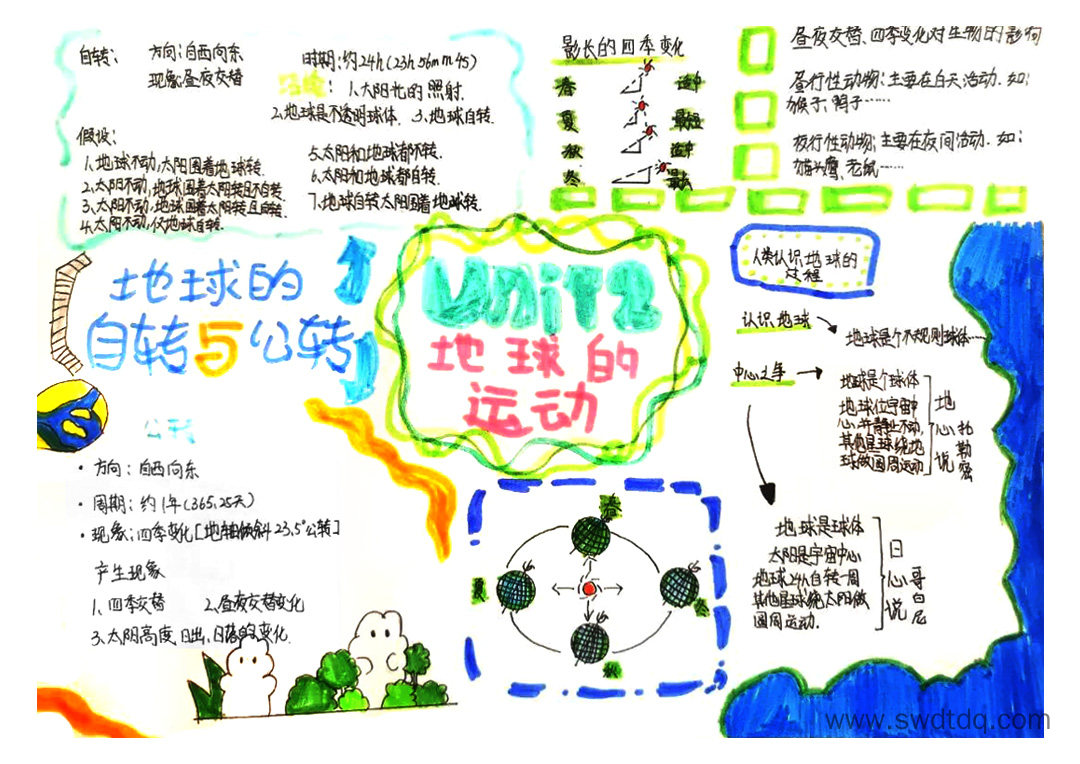 自转：
方向：自西向东
现象：昼夜交替
时期：约24h(23h 56m 4s)
1.太阳光的照射.
2.地球是不透明球体. 3.地球自转.
假设：
1.地球不动,太阳围着地球转.
2.太阳不动,地球围着太阳转且不自转.
3.太阳不动,地球围着太阳转且自转.
4.太阳不动,仅地球自转.
5.太阳和地球都不转.
6.太阳和地球都自转.
7.地球自转太阳围着地球转.
影长的四季变化
春 适中
夏 最短
秋 适中
冬 最长
昼夜交替、四季变化对生物的影响
昼行性动物：主要在白天活动. 如：
猴子、鸭子……
夜行性动物：主要在夜间活动. 如：
猫头鹰、老鼠……
地球的
自转与公转
Unit2
地球的
运动
人类认识地球的
过程
认识地球
地球是个不规则球体……
中心之争
地球是个球体
地球位宇宙中
心,并静止不动,
其他星球绕地
球做圆周运动
地心说
托勒密
地球是球体
太阳是宇宙中心
地球24h自转一周
其他星球绕太阳做
圆周运动.
日心说
哥白尼
公转
· 方向：自西向东
· 周期：约1年(365.25天)
· 现象：四季变化[地轴倾斜23.5°公转]
产生现象
1.四季交替 2.昼夜交替变化
3.太阳高度,日出,日落的变化.
春
夏
冬
秋
www.swdtdq.com